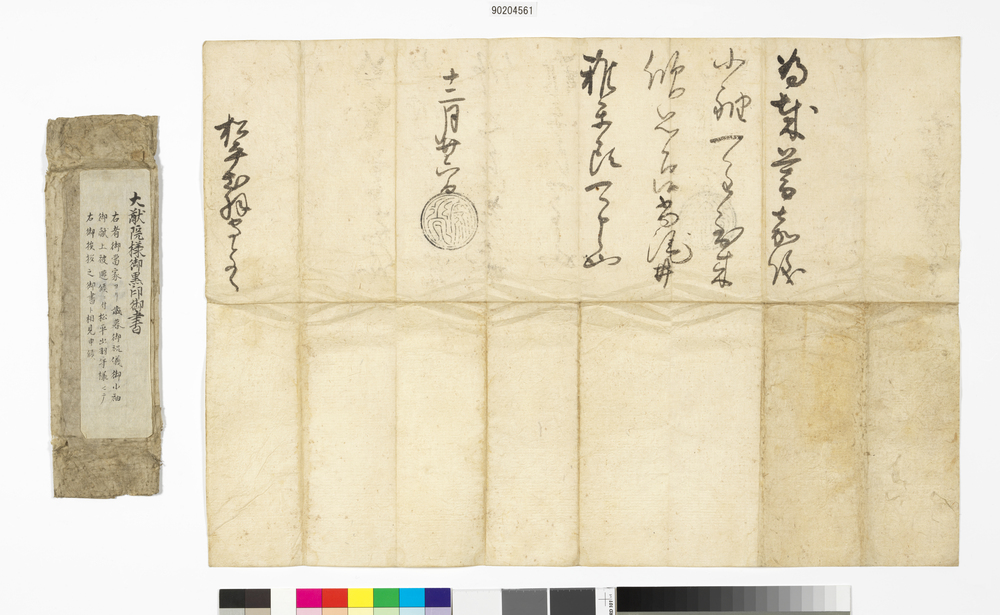 90204561
為歳暮嘉儀
小袖一重到来
思召候尚酒井
雅楽頭可申也
十二月廿六日
松平出羽守とのへ
大猷院様御黒印御書
右者御當家ヨリ歳暮御祝儀御小袖
御献上被遊候ニ付松平出羽守様ヘノ
右御挨拶之御書ト相見申候